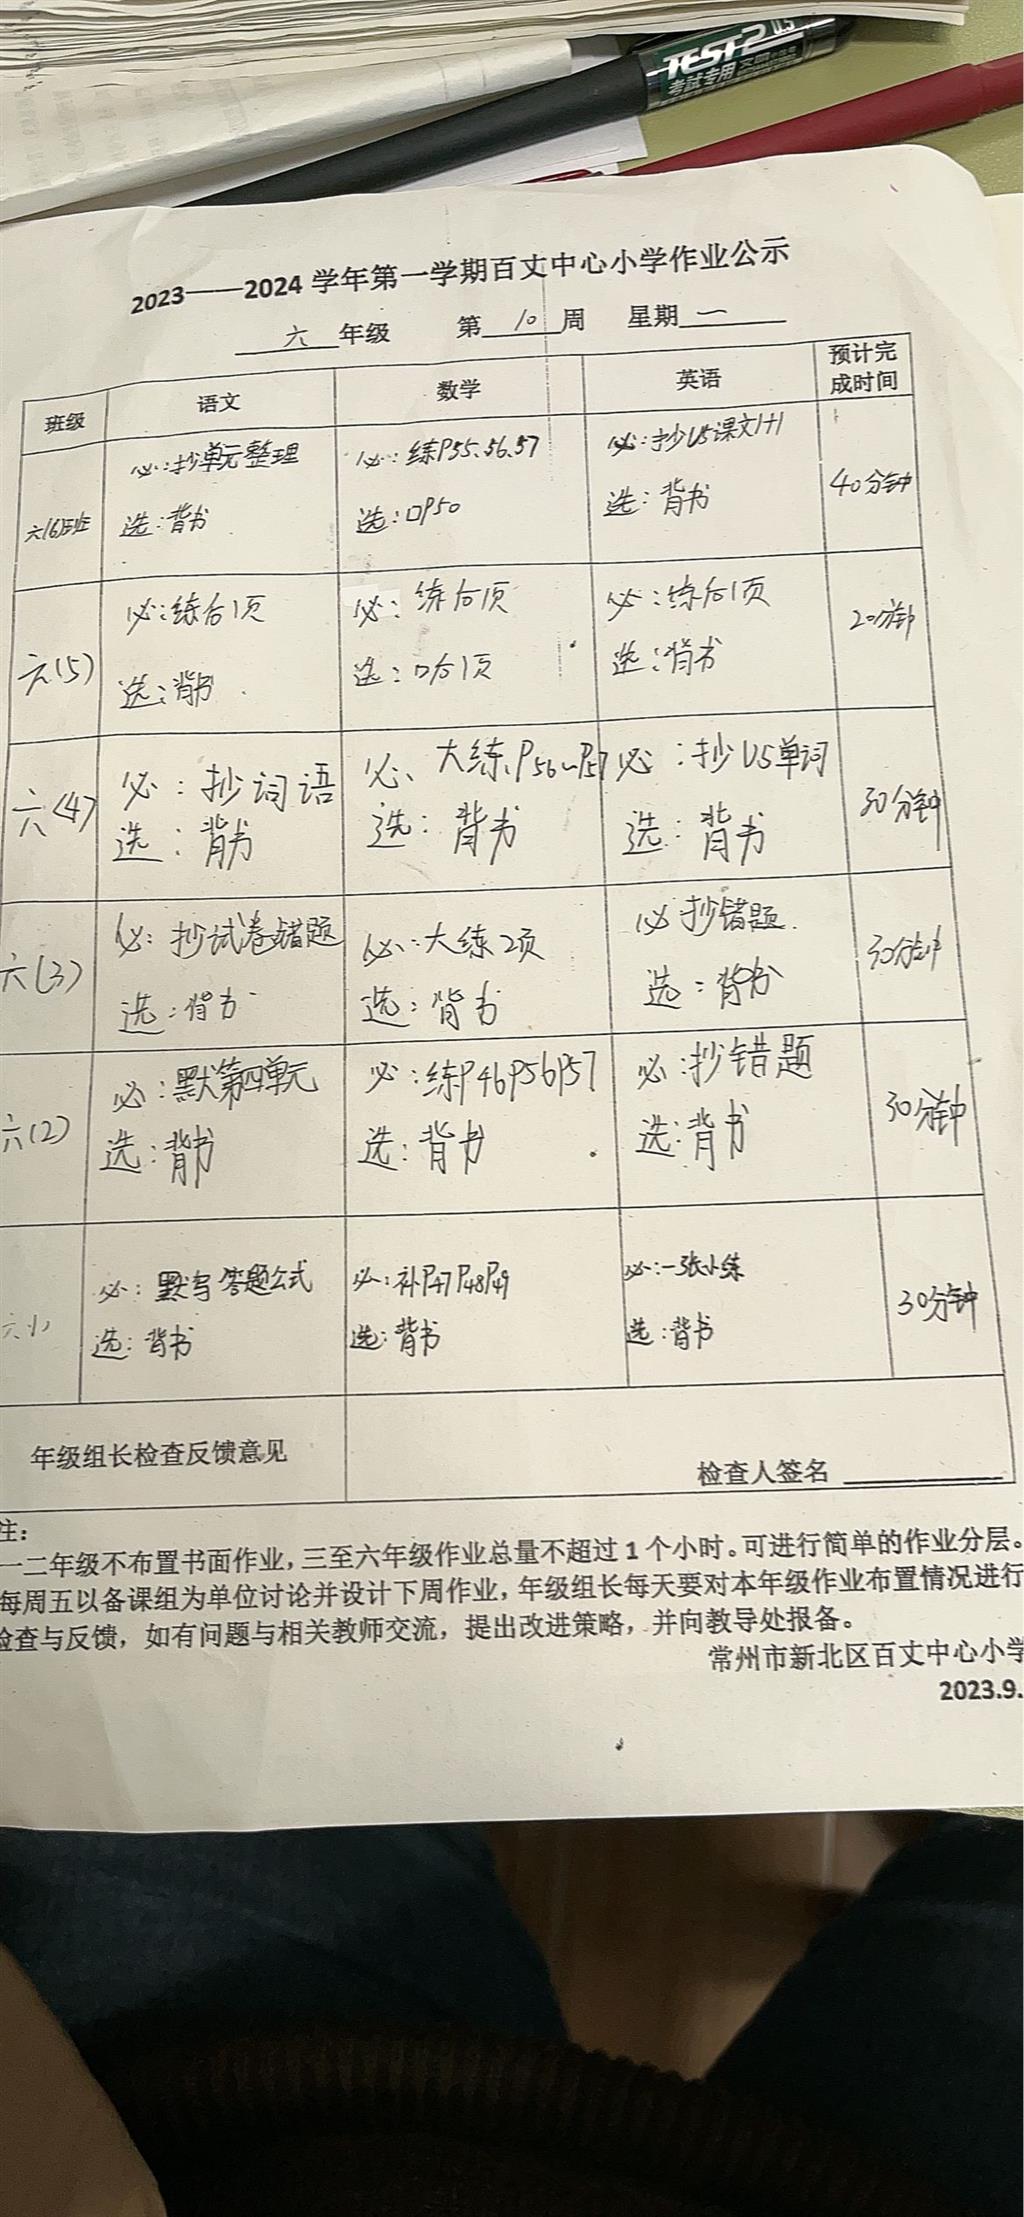 TEST-2 0.5
考試专用
2023——2024 学年第一学期百丈中心小学作业公示
六 年级 第 10 周 星期 一
班级 语文 数学 英语 预计完成时间
六(6)班 必:抄单元整理 必:练P55、56、57 必:抄U5课文1+1 40分钟
选:背书 选:口P50 选:背书
六(5) 必:练后1页 必:练后1页 必:练后1页 20分钟
选:背书 选:口后1页 选:背书
六(4) 必:抄词语 必、大练P56~P57 必:抄U5单词 30分钟
选:背书 选:背书 选:背书
六(3) 必:抄试卷错题 必:大练2页 必 抄错题 30分钟
选:背书 选:背书 选:背书
六(2) 必:默第四单元 必:练P46P56P57 必:抄错题 30分钟
选:背书 选:背书 选:背书
六 必:默写答题公式 必:补P47P48P49 必:一张小练 30分钟
选:背书 选:背书 选:背书
年级组长检查反馈意见
检查人签名
注:
一二年级不布置书面作业,三至六年级作业总量不超过 1 个小时。可进行简单的作业分层。
每周五以备课组为单位讨论并设计下周作业,年级组长每天要对本年级作业布置情况进行
检查与反馈,如有问题与相关教师交流,提出改进策略,并向教导处报备。
常州市新北区百丈中心小学
2023.9.